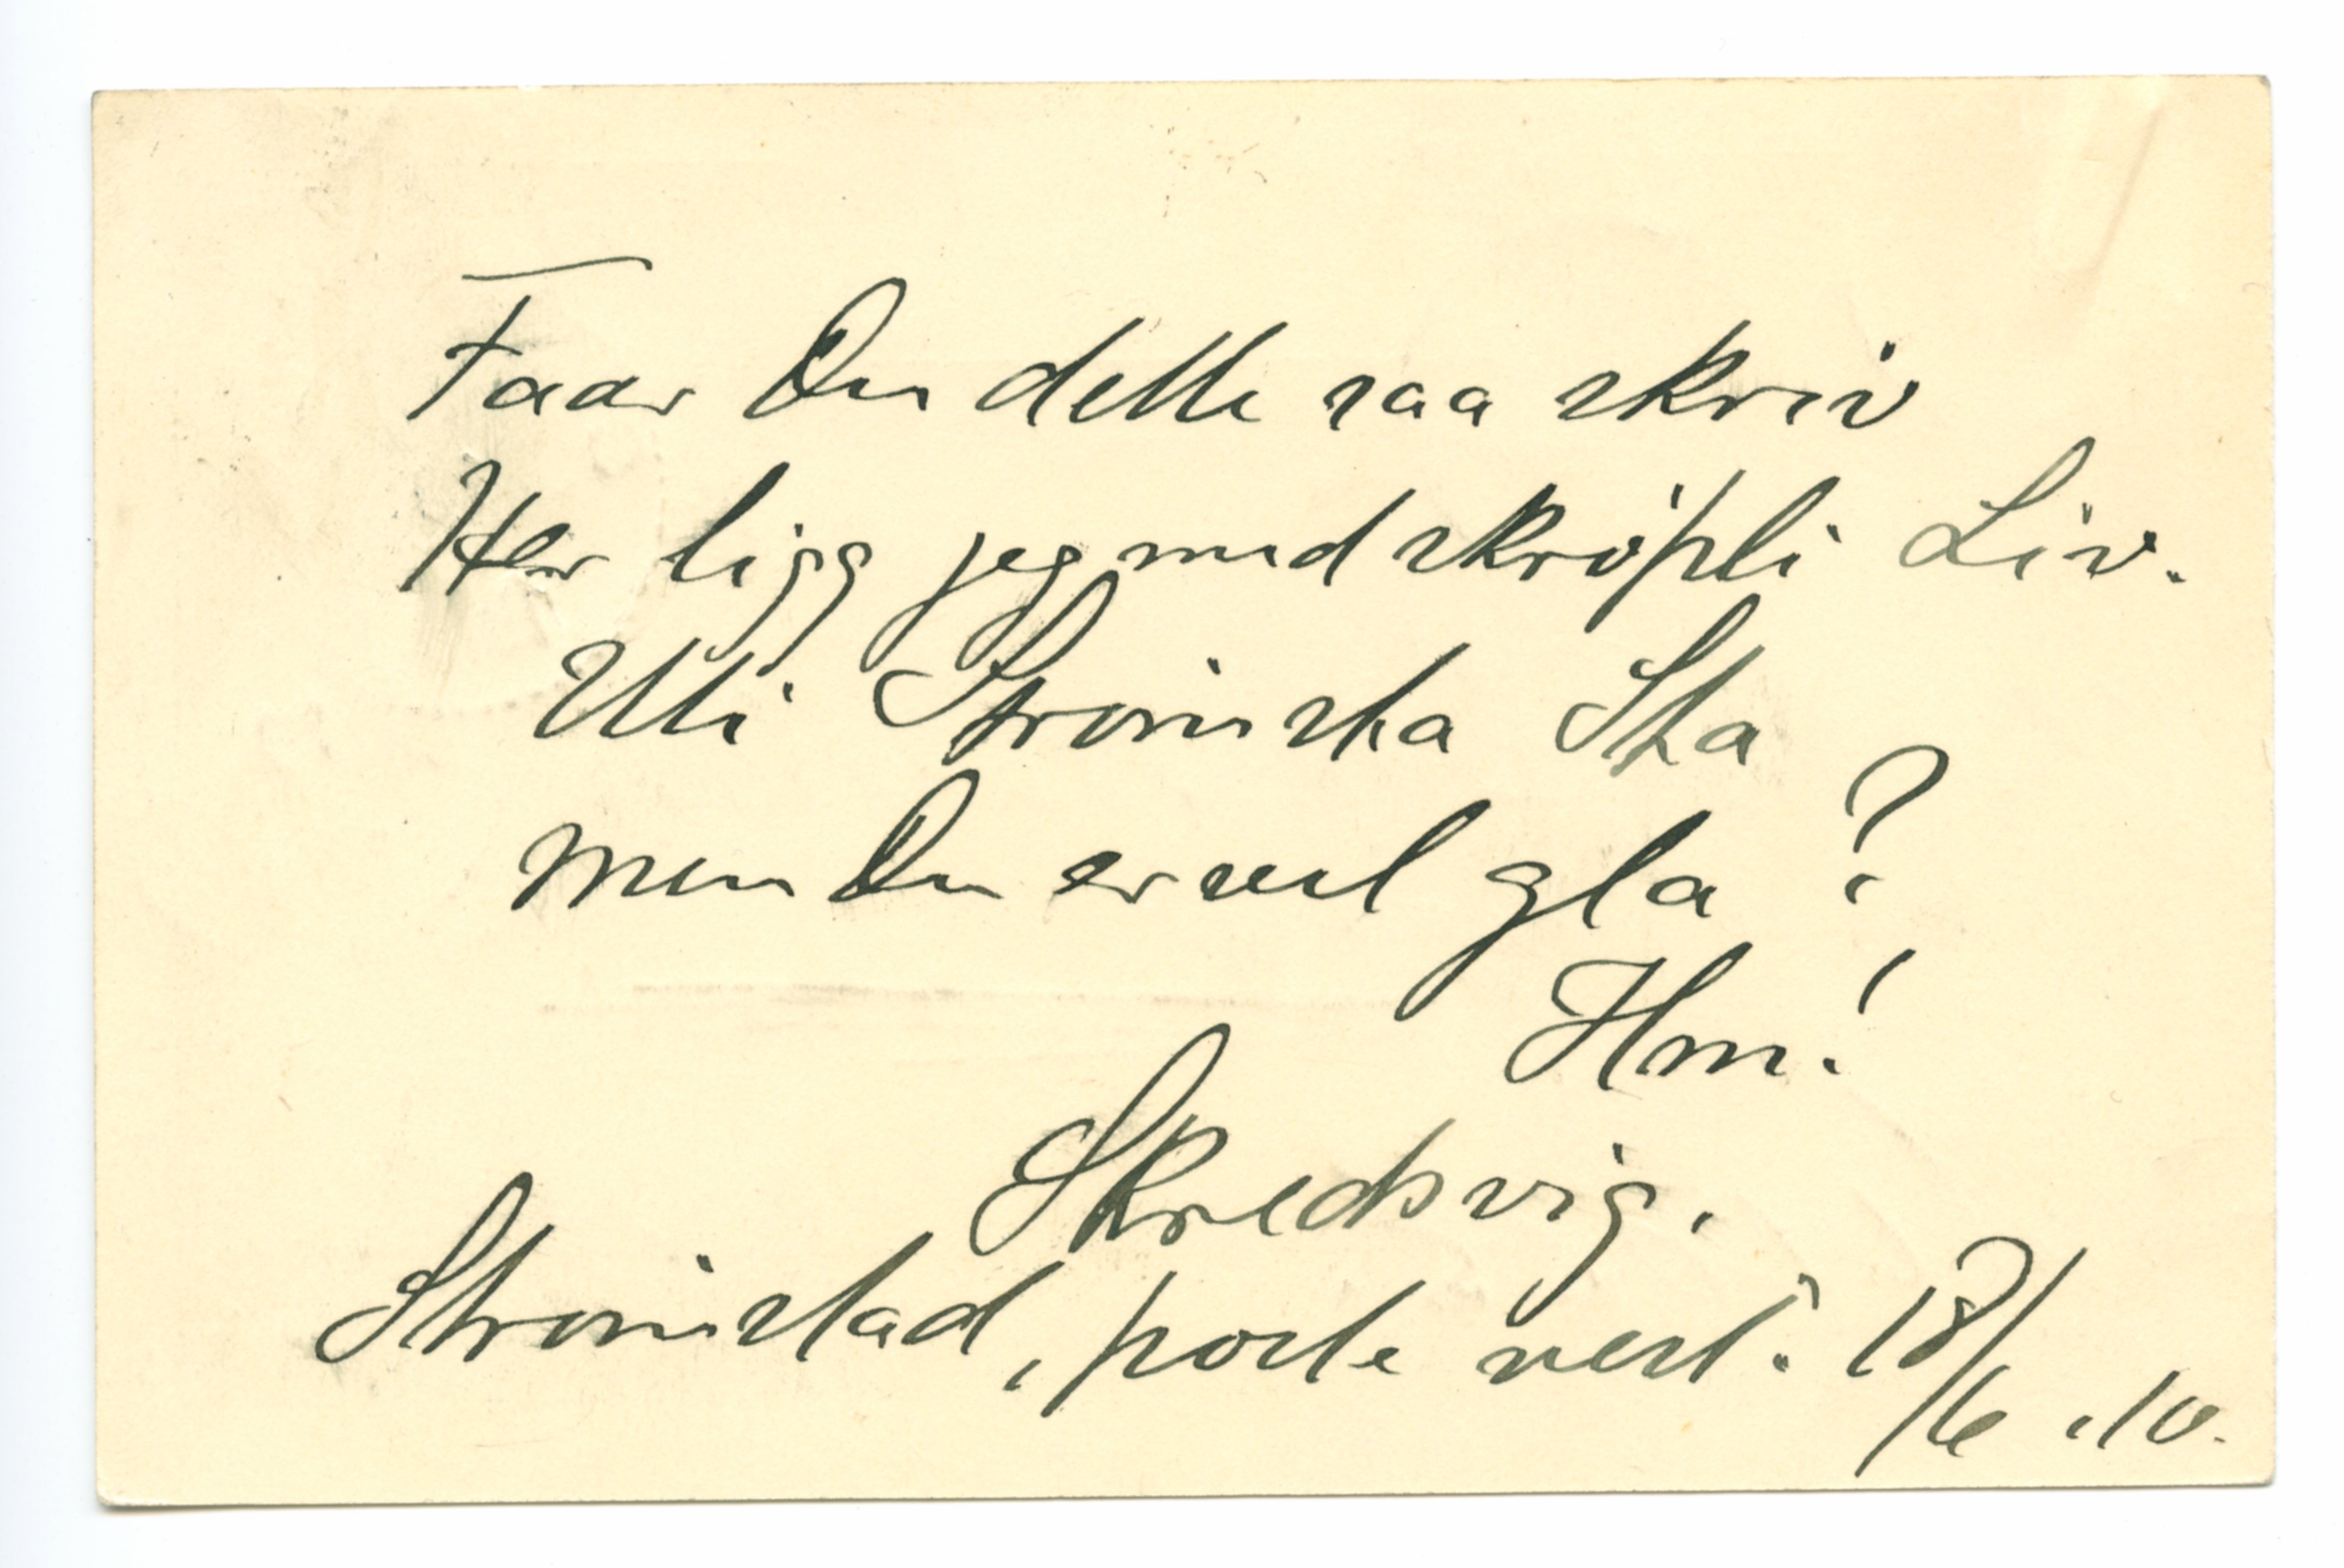 Faar Du dette saa skriv
Her ligg jeg med skröpli Liv.
Uti Strömsta Sta
Men Du er vel gla?
Hm!
Skredsvig.
Strömstad, poste rest: 18/6.10.